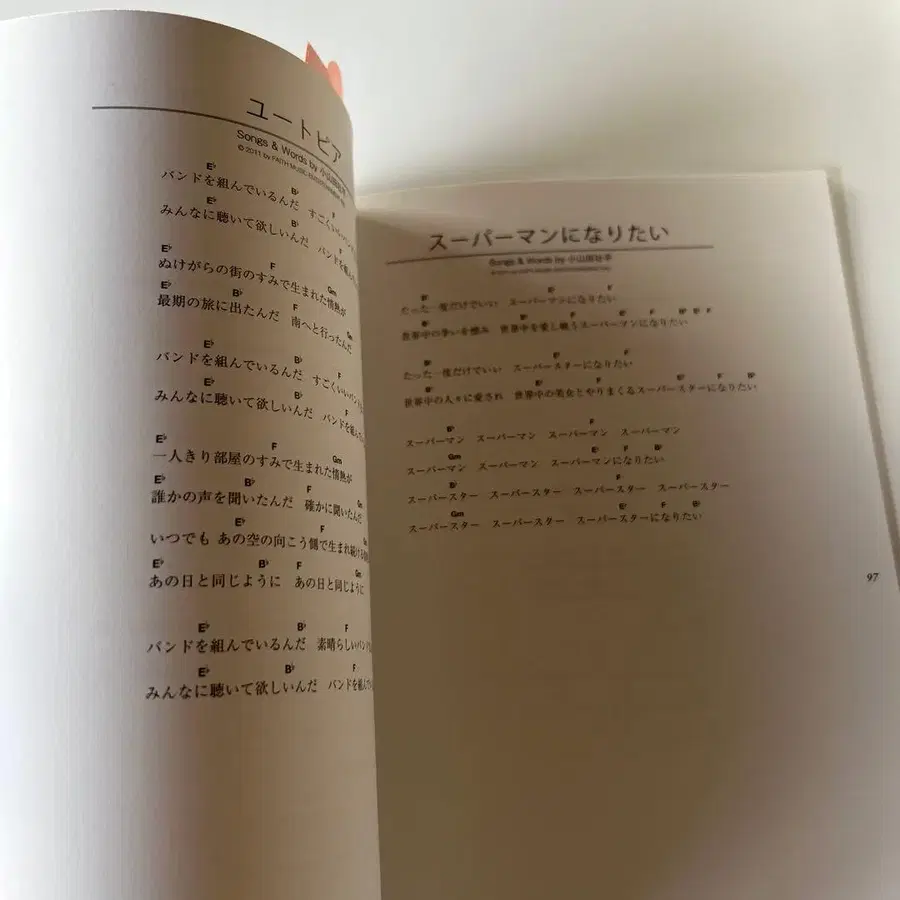 ユートピア
Songs & Words by 小山田壮平
© 2011 by FAITH MUSIC ENTERTAINMENT INC.
E♭ B♭ F
バンドを組んでいるんだ すごくいいバンド
E♭ B♭
みんなに聴いて欲しいんだ バンドを組ん
E♭ F Gm
ぬけがらの街のすみで生まれた情熱が
E♭ B♭ F Gm
最期の旅に出たんだ 南へと行ったんだ
E♭ B♭ F
バンドを組んでいるんだ すごくいいバンド
E♭ B♭ F
みんなに聴いて欲しいんだ バンドを組ん
E♭ F Gm
一人きり部屋のすみで生まれた情熱が
E♭ B♭ F Gm
誰かの声を聞いたんだ 確かに聞いたんだ
E♭ F
いつでも あの空の向こう側で生まれ続ける
E♭ B♭ F Gm
あの日と同じように あの日と同じように
E♭ B♭ F
バンドを組んでいるんだ 素晴らしいバンド
E♭ B♭ F
みんなに聴いて欲しいんだ バンドを組ん
スーパーマンになりたい
Songs & Words by 小山田壮平
B♭ E♭ F
たった一度だけでいい スーパーマンになりたい
B♭ E♭ F E♭ F B♭ E♭ F
世界中の争いを憎み 世界中を愛し戦うスーパーマンになりたい
B♭ E♭ F
たった一度だけでいい スーパースターになりたい
B♭ E♭ F E♭ F B♭
世界中の人々に愛され 世界中の美女とやりまくるスーパースターになりたい
B♭ F
スーパーマン スーパーマン スーパーマン スーパーマン
Gm E♭ F B♭
スーパーマン スーパーマン スーパーマンになりたい
B♭ F
スーパースター スーパースター スーパースター スーパースター
Gm E♭ F B♭
スーパースター スーパースター スーパースターになりたい
97